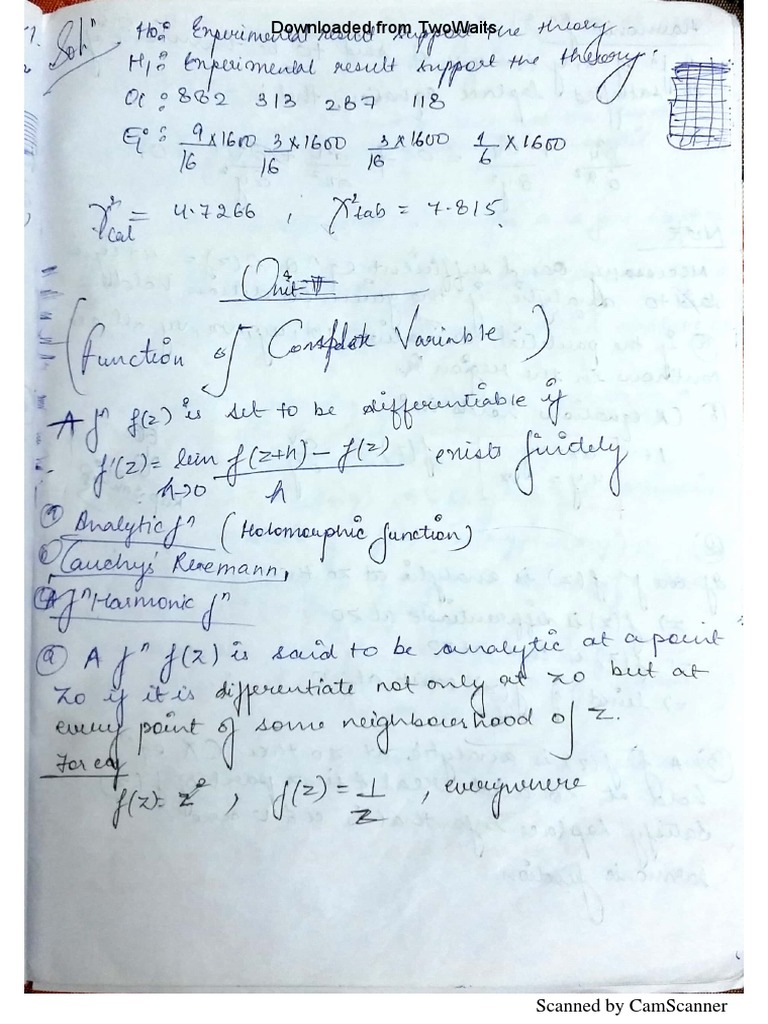 Downloaded from TwoWaits
Solⁿ H₀: Experimental result support the theory
H₁: Experimental result support the theory.
Oi: 882 313 287 118
Ei: 9/16 × 1600 3/16 × 1600 3/16 × 1600 1/6 × 1600
χ²cal = 4.7266 , χ²tab = 7.815.
Unit-
(Function of Complex Variable)
A fⁿ f(z) is set to be differentiable if
f'(z) = lim h→0 f(z+h) - f(z) / h exists finidely
Analytic fⁿ (Holomorphic function)
Cauchys Reremann,
fⁿ Harmonic fⁿ
ⓐ A fⁿ f(z) is said to be analytic at a point
z0 if it is differentiate not only at z0 but at
every point of some neighbourhood of z.
For eg
f(z) = z² , f(z) = 1/z , everywhere
Scanned by CamScanner